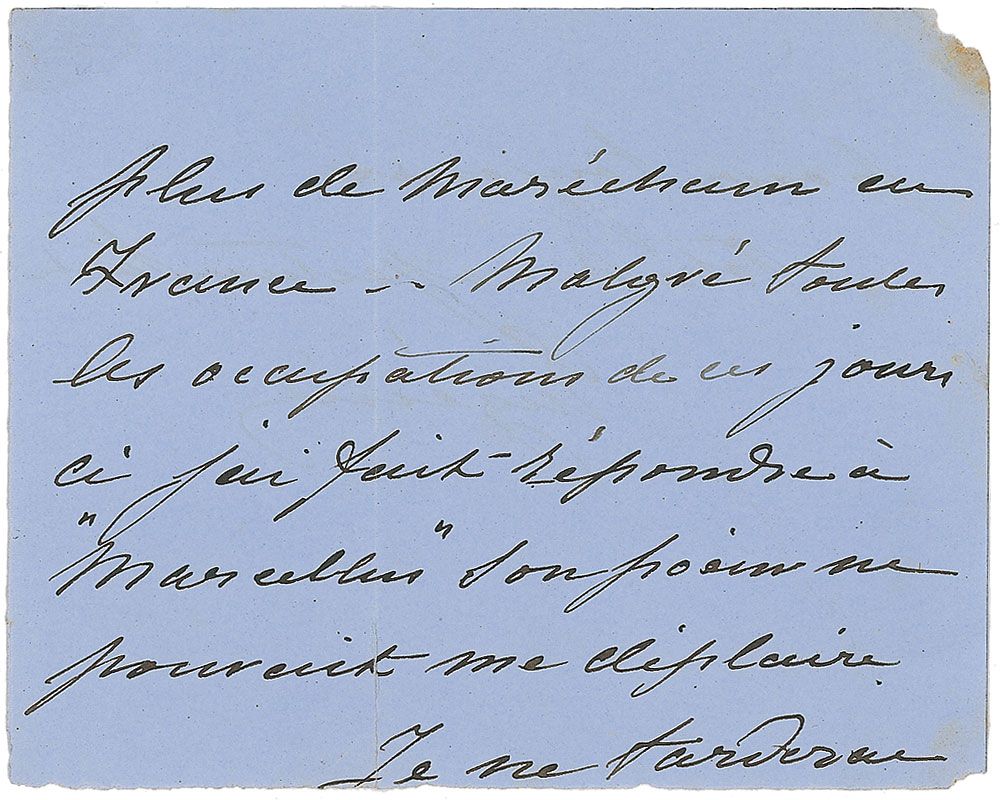 plus de Maréchaux en
France — Malgré toutes
les occupations de ces jours
ci j'ai fait répondre à
"Marcellus" Son poëme ne
pouvait me déplaire
Je ne tarderai